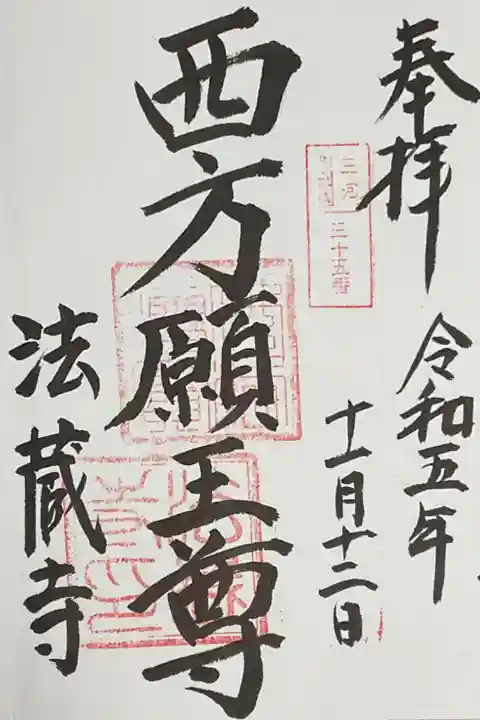 奉拝
三河
三十五番
令和五年
十一月十二日
西方願王尊
法蔵寺